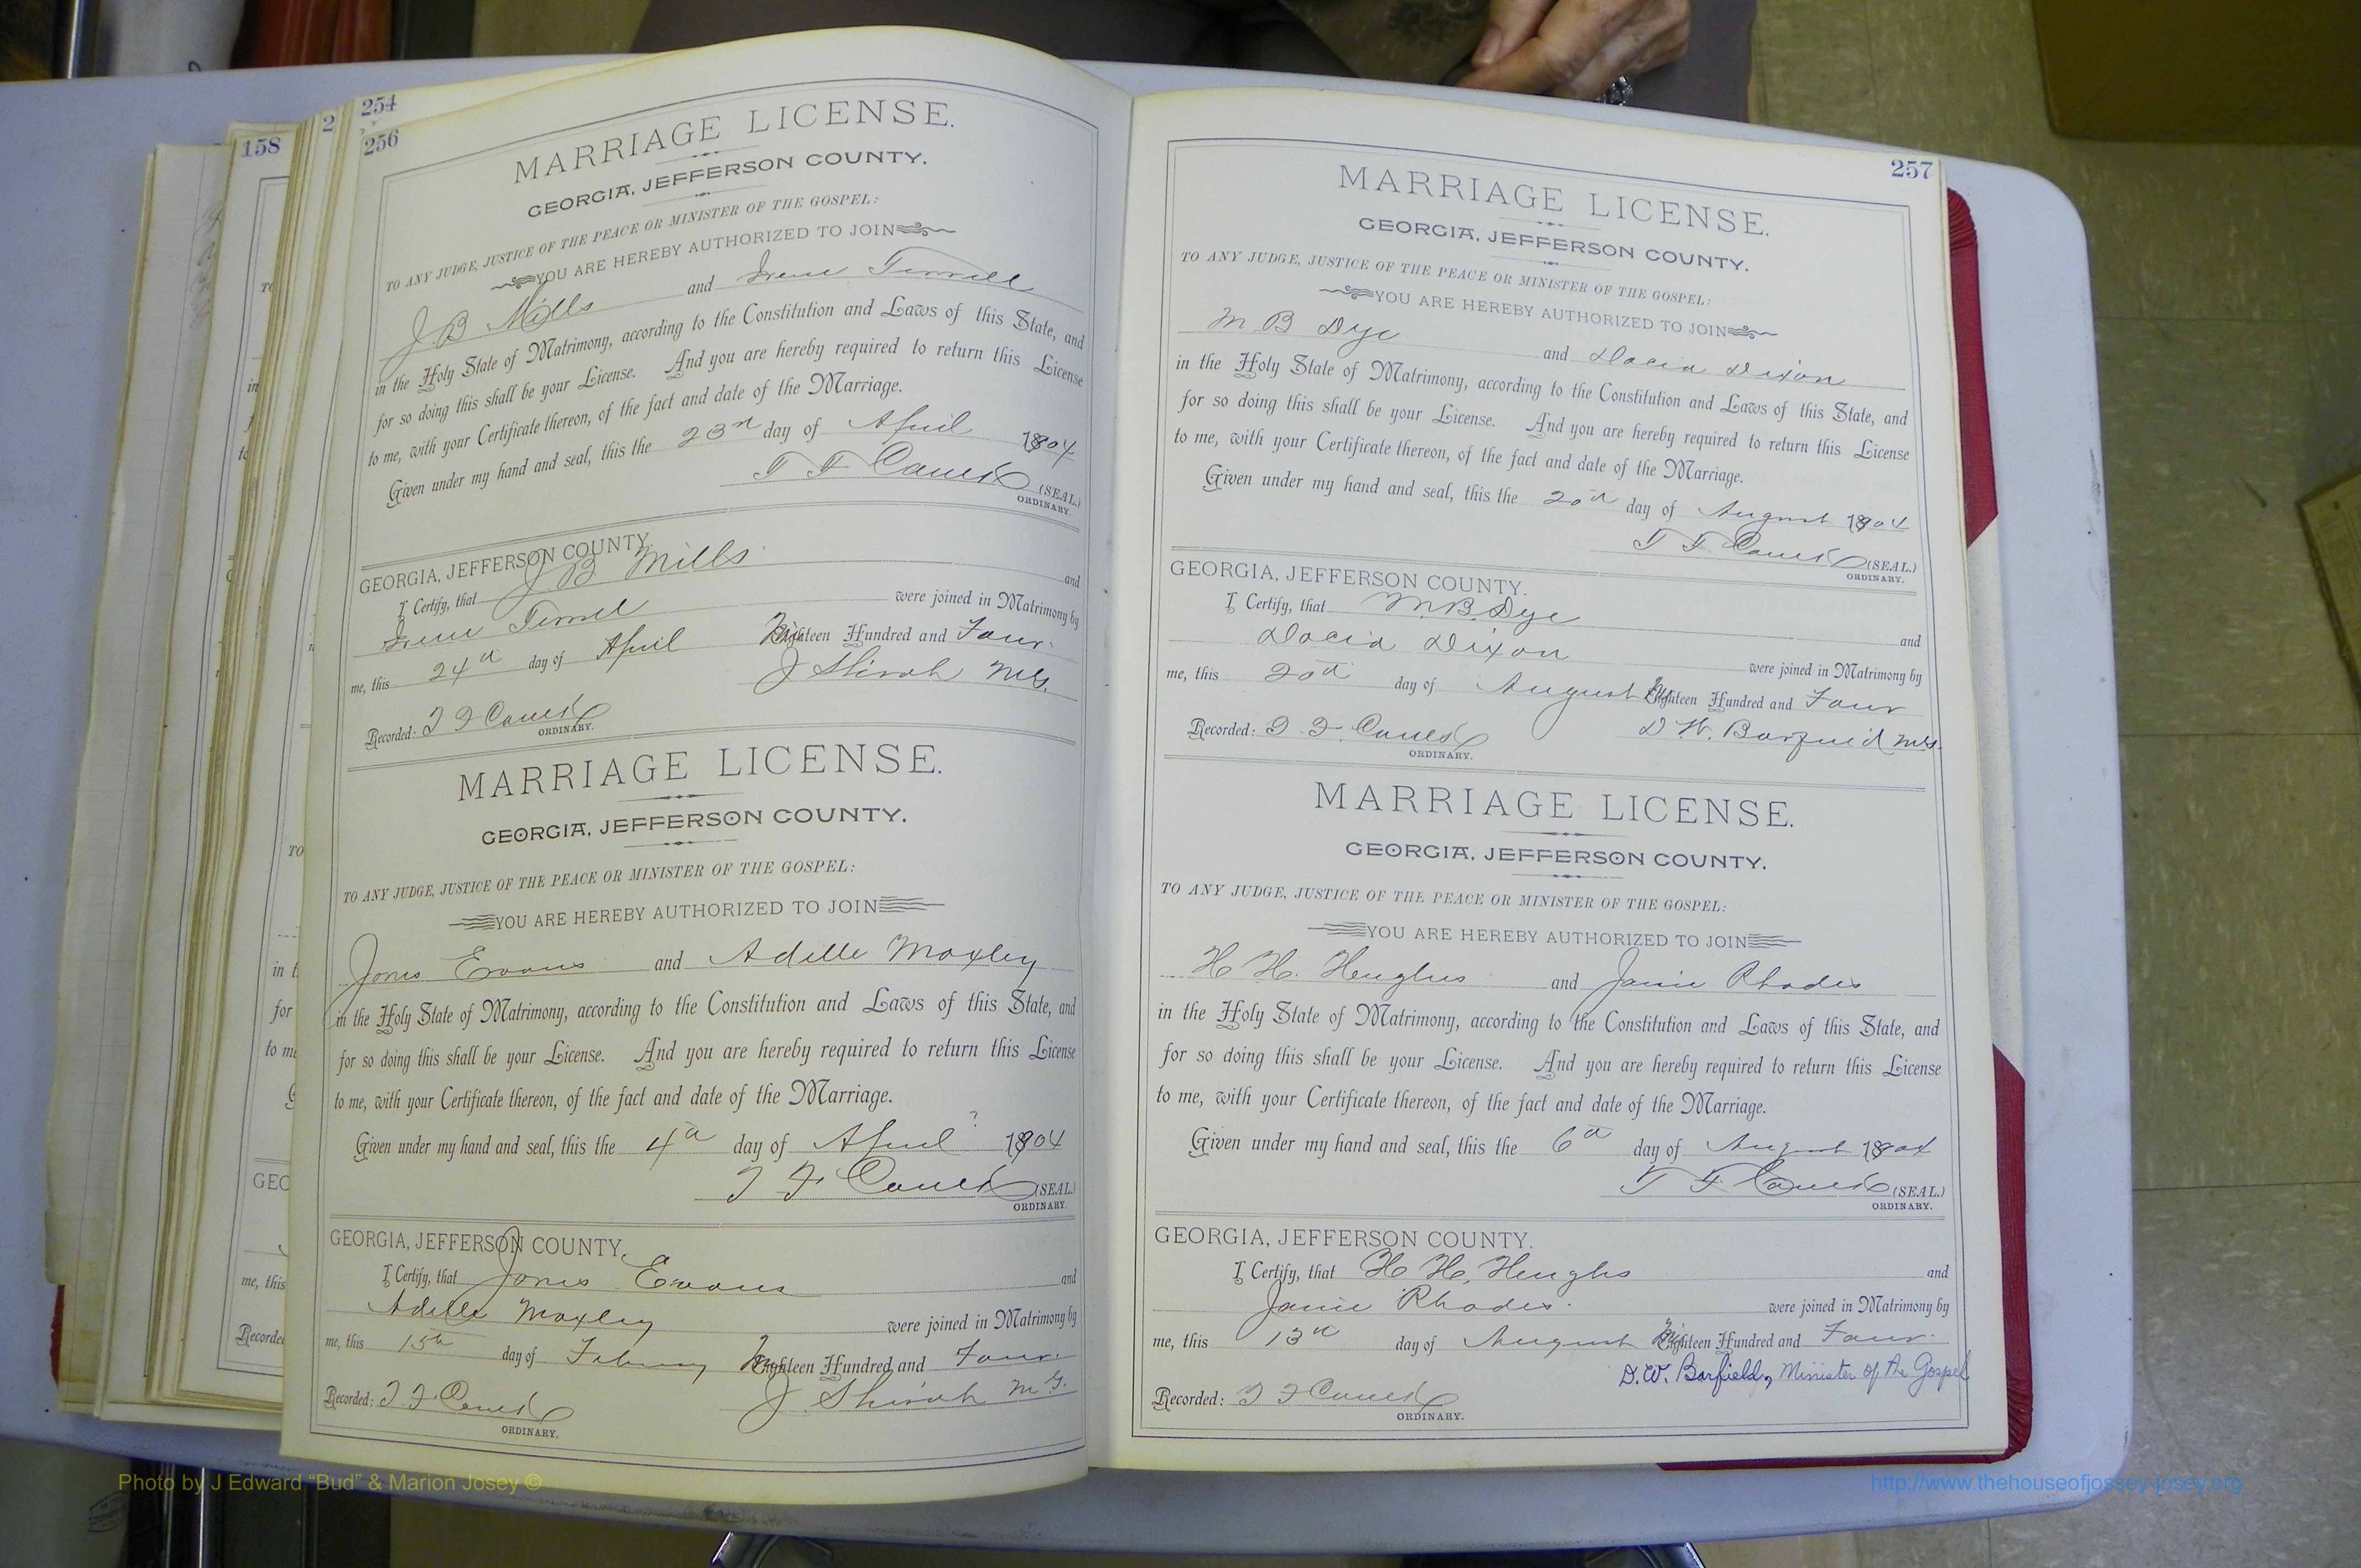 158
2
254
256
MARRIAGE LICENSE.
GEORGIA, JEFFERSON COUNTY.
TO ANY JUDGE, JUSTICE OF THE PEACE OR MINISTER OF THE GOSPEL:
YOU ARE HEREBY AUTHORIZED TO JOIN
J. B Mills and Irene Terrell
in the Holy State of Matrimony, according to the Constitution and Laws of this State, and
for so doing this shall be your License. And you are hereby required to return this License
to me, with your Certificate thereon, of the fact and date of the Marriage.
Given under my hand and seal, this the 23rd day of April 1904
(SEAL.)
ORDINARY.
GEORGIA, JEFFERSON COUNTY.
I Certify, that J B Mills and
Irene Terrell were joined in Matrimony by
me, this 24th day of April Eighteen Hundred and Four.
J Shirah MG.
Recorded:
ORDINARY.
MARRIAGE LICENSE.
GEORGIA, JEFFERSON COUNTY.
TO ANY JUDGE, JUSTICE OF THE PEACE OR MINISTER OF THE GOSPEL:
YOU ARE HEREBY AUTHORIZED TO JOIN
Jones Evans and Adelle Moxley
in the Holy State of Matrimony, according to the Constitution and Laws of this State, and
for so doing this shall be your License. And you are hereby required to return this License
to me, with your Certificate thereon, of the fact and date of the Marriage.
Given under my hand and seal, this the 4th day of April ? 1904
(SEAL.)
ORDINARY.
GEORGIA, JEFFERSON COUNTY.
I Certify, that Jones Evans and
Adelle Moxley were joined in Matrimony by
me, this 15th day of February Eighteen Hundred and Four.
J Shirah M G.
Recorded:
ORDINARY.
257
MARRIAGE LICENSE.
GEORGIA, JEFFERSON COUNTY.
TO ANY JUDGE, JUSTICE OF THE PEACE OR MINISTER OF THE GOSPEL:
YOU ARE HEREBY AUTHORIZED TO JOIN
M B Dye and Docia Dixon
in the Holy State of Matrimony, according to the Constitution and Laws of this State, and
for so doing this shall be your License. And you are hereby required to return this License
to me, with your Certificate thereon, of the fact and date of the Marriage.
Given under my hand and seal, this the 20th day of August 1904
(SEAL.)
ORDINARY.
GEORGIA, JEFFERSON COUNTY.
I Certify, that M. B. Dye and
Docia Dixon were joined in Matrimony by
me, this 20th day of August Eighteen Hundred and Four
D. W. Barfield MG.
Recorded:
ORDINARY.
MARRIAGE LICENSE.
GEORGIA, JEFFERSON COUNTY.
TO ANY JUDGE, JUSTICE OF THE PEACE OR MINISTER OF THE GOSPEL:
YOU ARE HEREBY AUTHORIZED TO JOIN
H H. Heughs and Janie Rhodes
in the Holy State of Matrimony, according to the Constitution and Laws of this State, and
for so doing this shall be your License. And you are hereby required to return this License
to me, with your Certificate thereon, of the fact and date of the Marriage.
Given under my hand and seal, this the 6th day of August 1904
(SEAL.)
ORDINARY.
GEORGIA, JEFFERSON COUNTY.
I Certify, that H H. Heughs and
Janie Rhodes. were joined in Matrimony by
me, this 13th day of August Eighteen Hundred and Four.
D. W. Barfield, Minister of the Gospel
Recorded:
ORDINARY.
Photo by J Edward "Bud" & Marion Josey ©
http://www.thehouseofjossey-josey.org